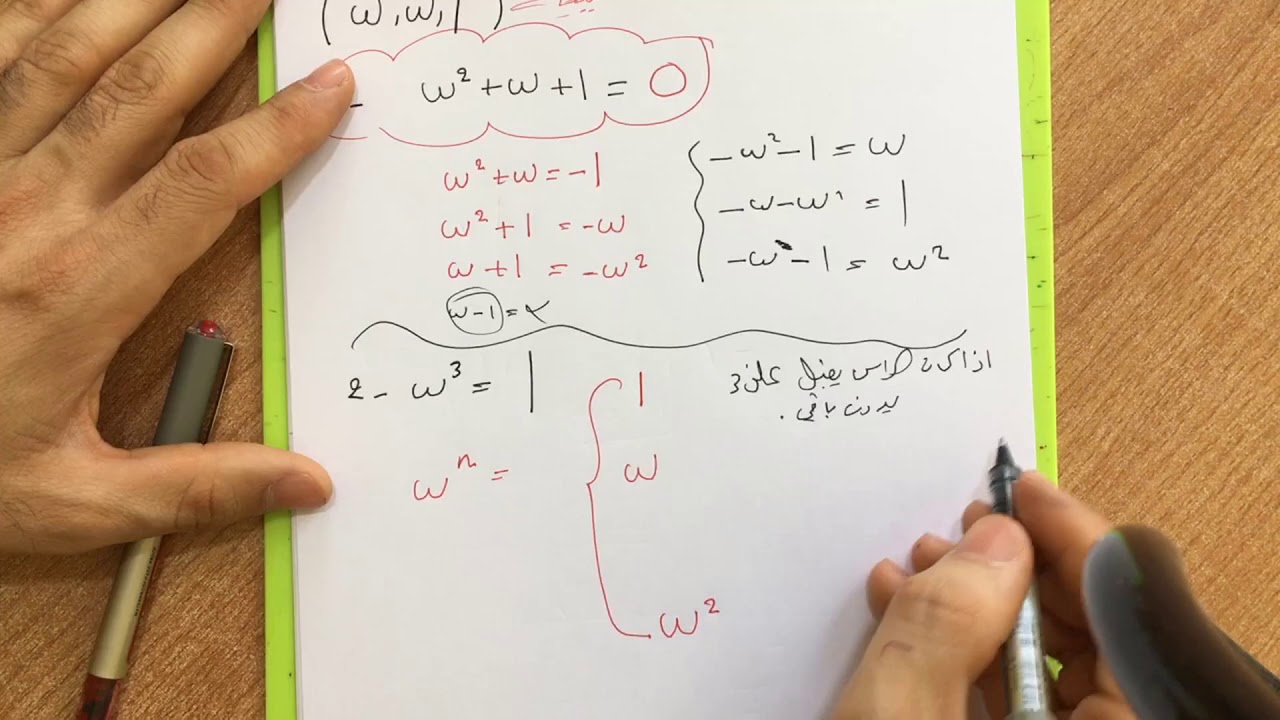 (ω, ω, 1)
ω² + ω + 1 = 0
ω² + ω = -1
ω² + 1 = -ω
ω + 1 = -ω²
ω - 1 =
-ω² - 1 = ω
-ω - ω² = 1
-ω - 1 = ω²
2 - ω³ = 1
ωⁿ =
1
ω
ω²
اذا كان الاس يقبل على 3
بدون باقي .